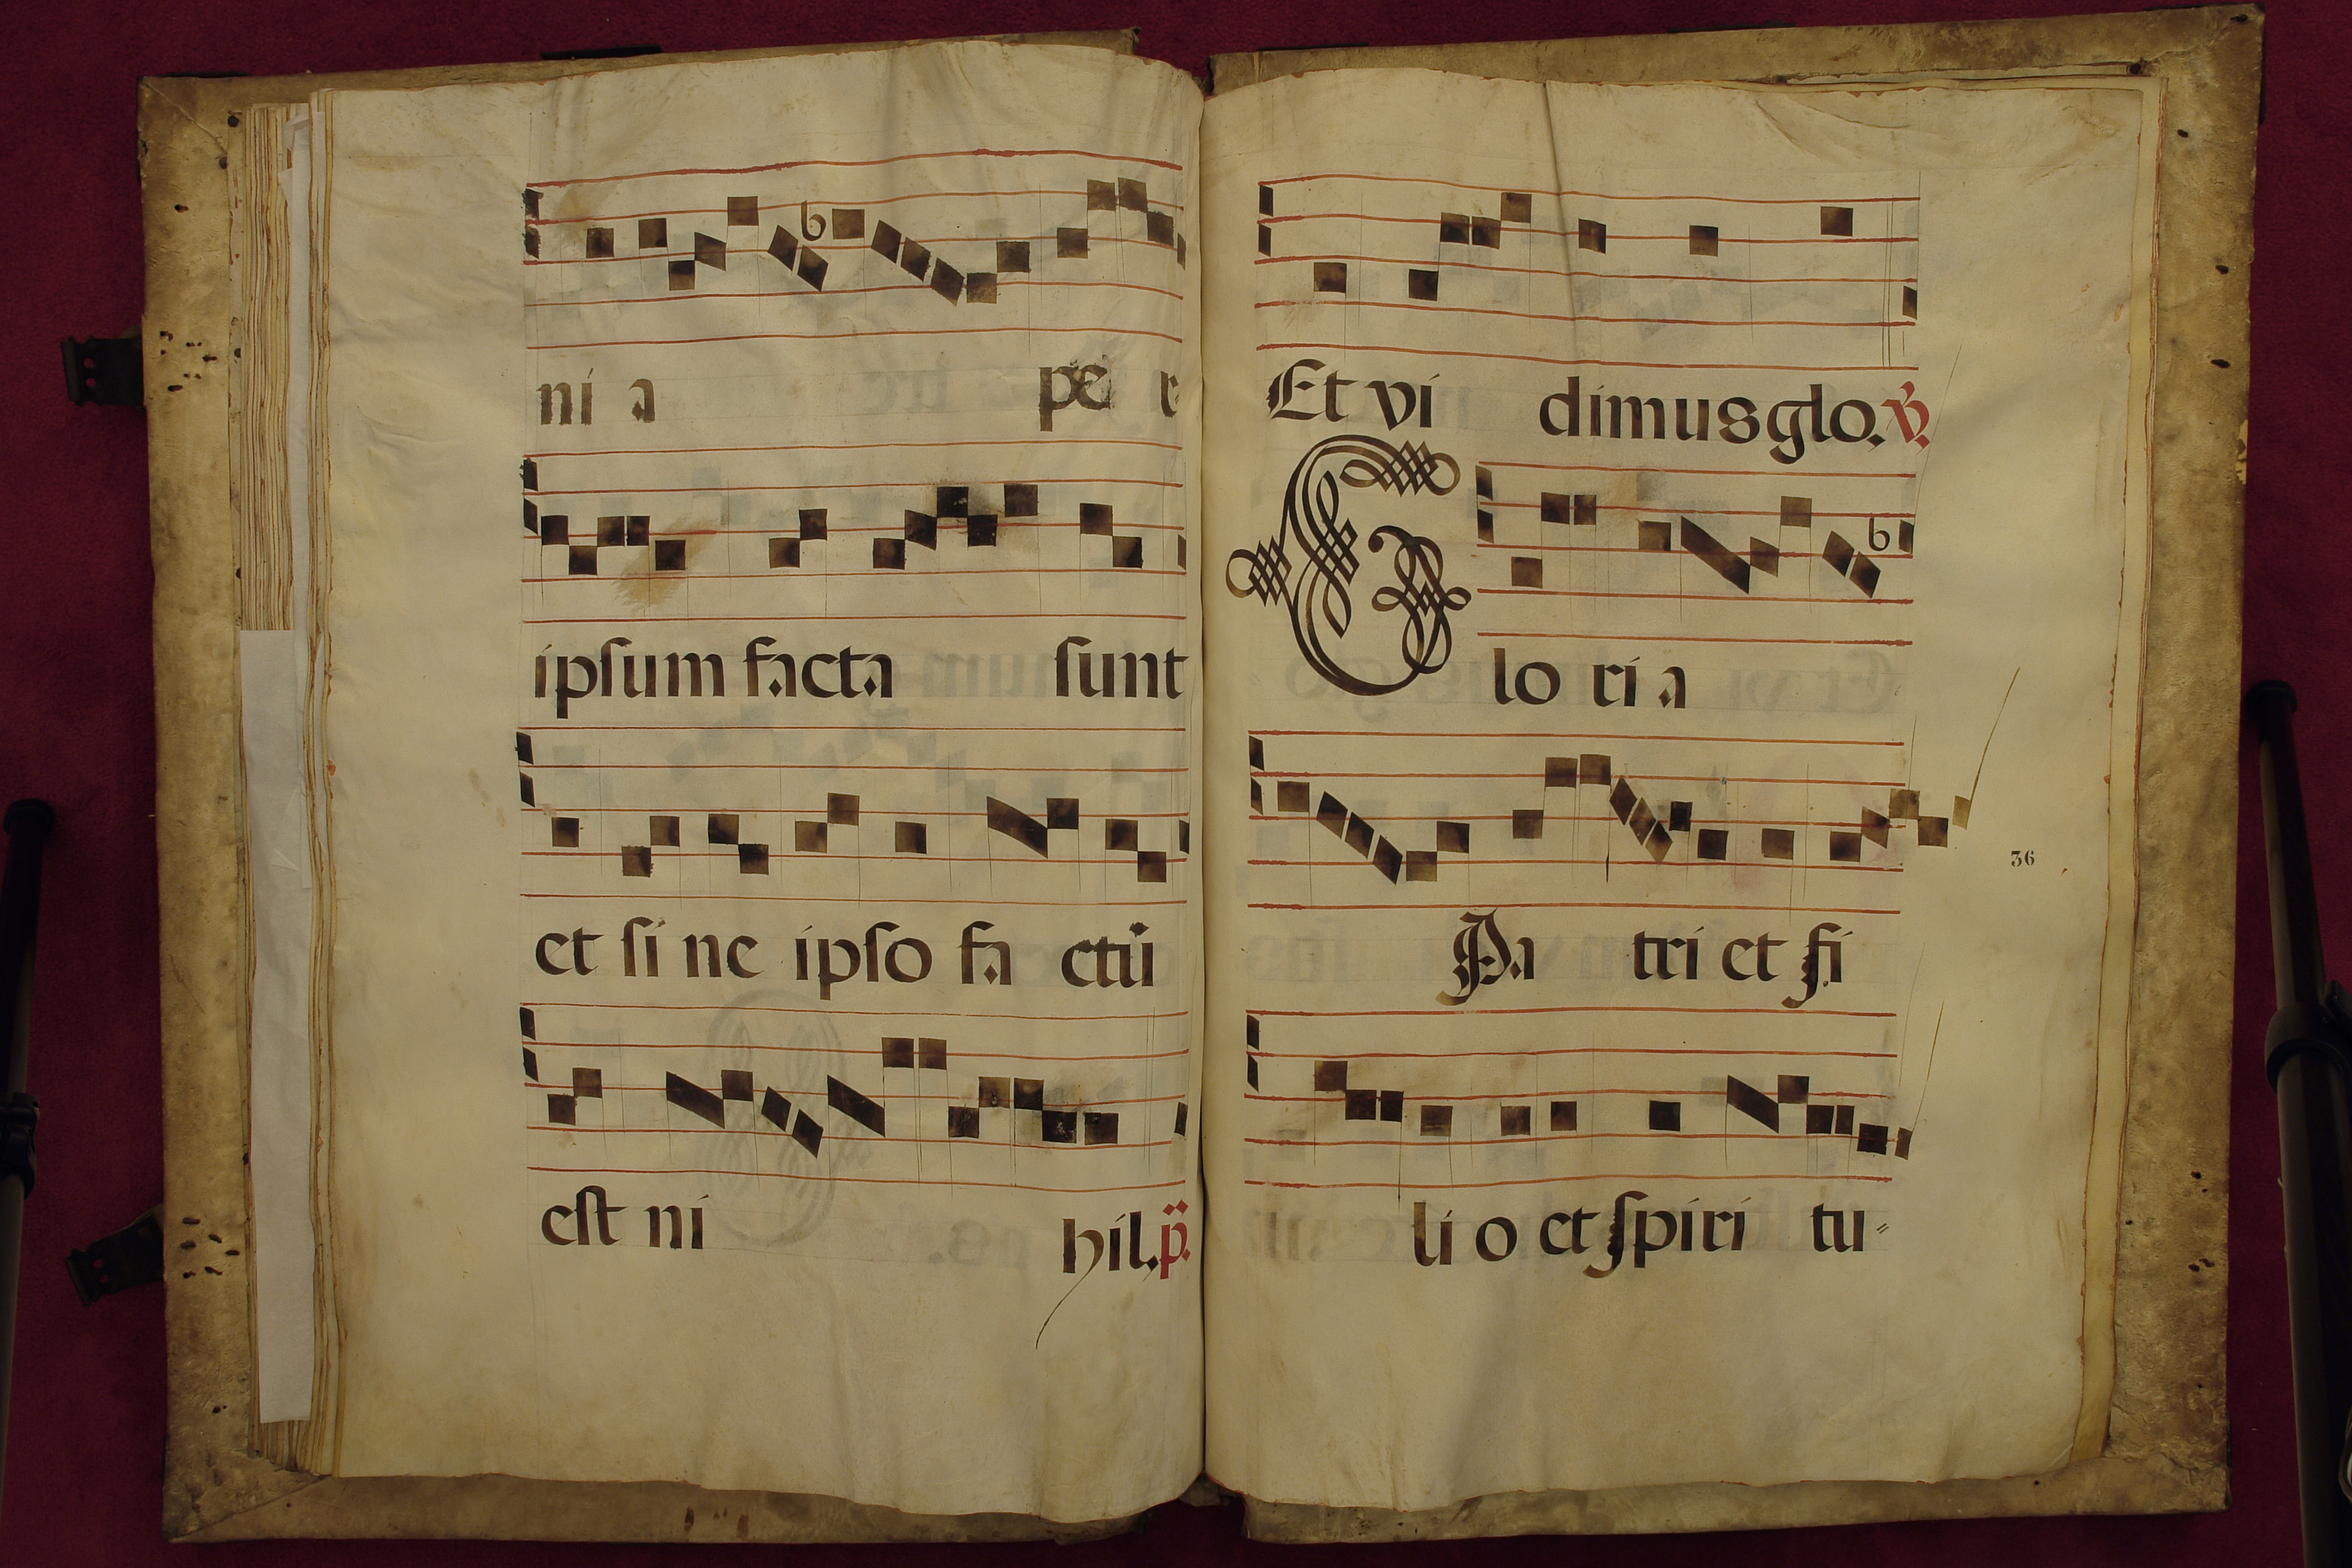 ni a pe r
ipſum facta ſunt
et ſi ne ipſo fa ctū
eſt ni hil. p̈.
Et vi dimus glo. ℣.
Glo ri a
Pa tri et fi
li o et ſpiri tu-
36